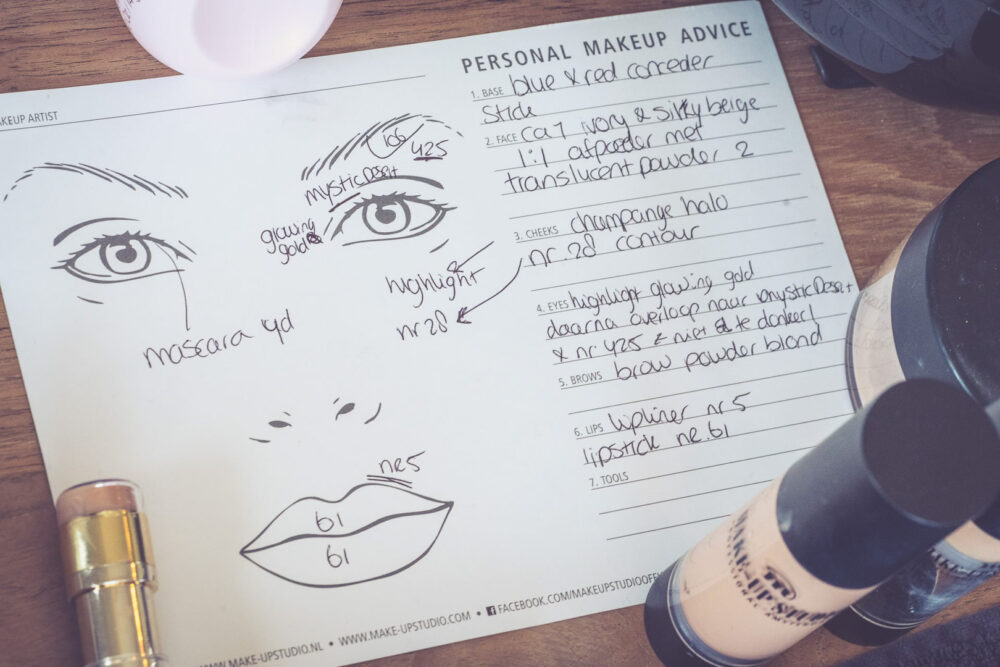 PERSONAL MAKEUP ADVICE
MAKEUP ARTIST
1. BASE blue & red conceder
Stick
2. FACE ca 1 ivory & silky beige
1:1 afpoeder met
translucent powder 2
3. CHEEKS champange halo
nr. 28 contour
4. EYES highlight glowing gold
daarna overloop naar mystic Desert
& nr. 425 niet te donker!
5. BROWS brow powder blond
6. LIPS lipliner nr 5
lipstick nr. 61
7. TOOLS
106
425
mystic Desert
glowing
gold
highlight
nr 28
mascara 4d
nr 5
61
61
WWW.MAKE-UPSTUDIO.NL • WWW.MAKE-UPSTUDIO.COM • FACEBOOK.COM/MAKEUPSTUDIOOFF
MAKE-UP STUDIO